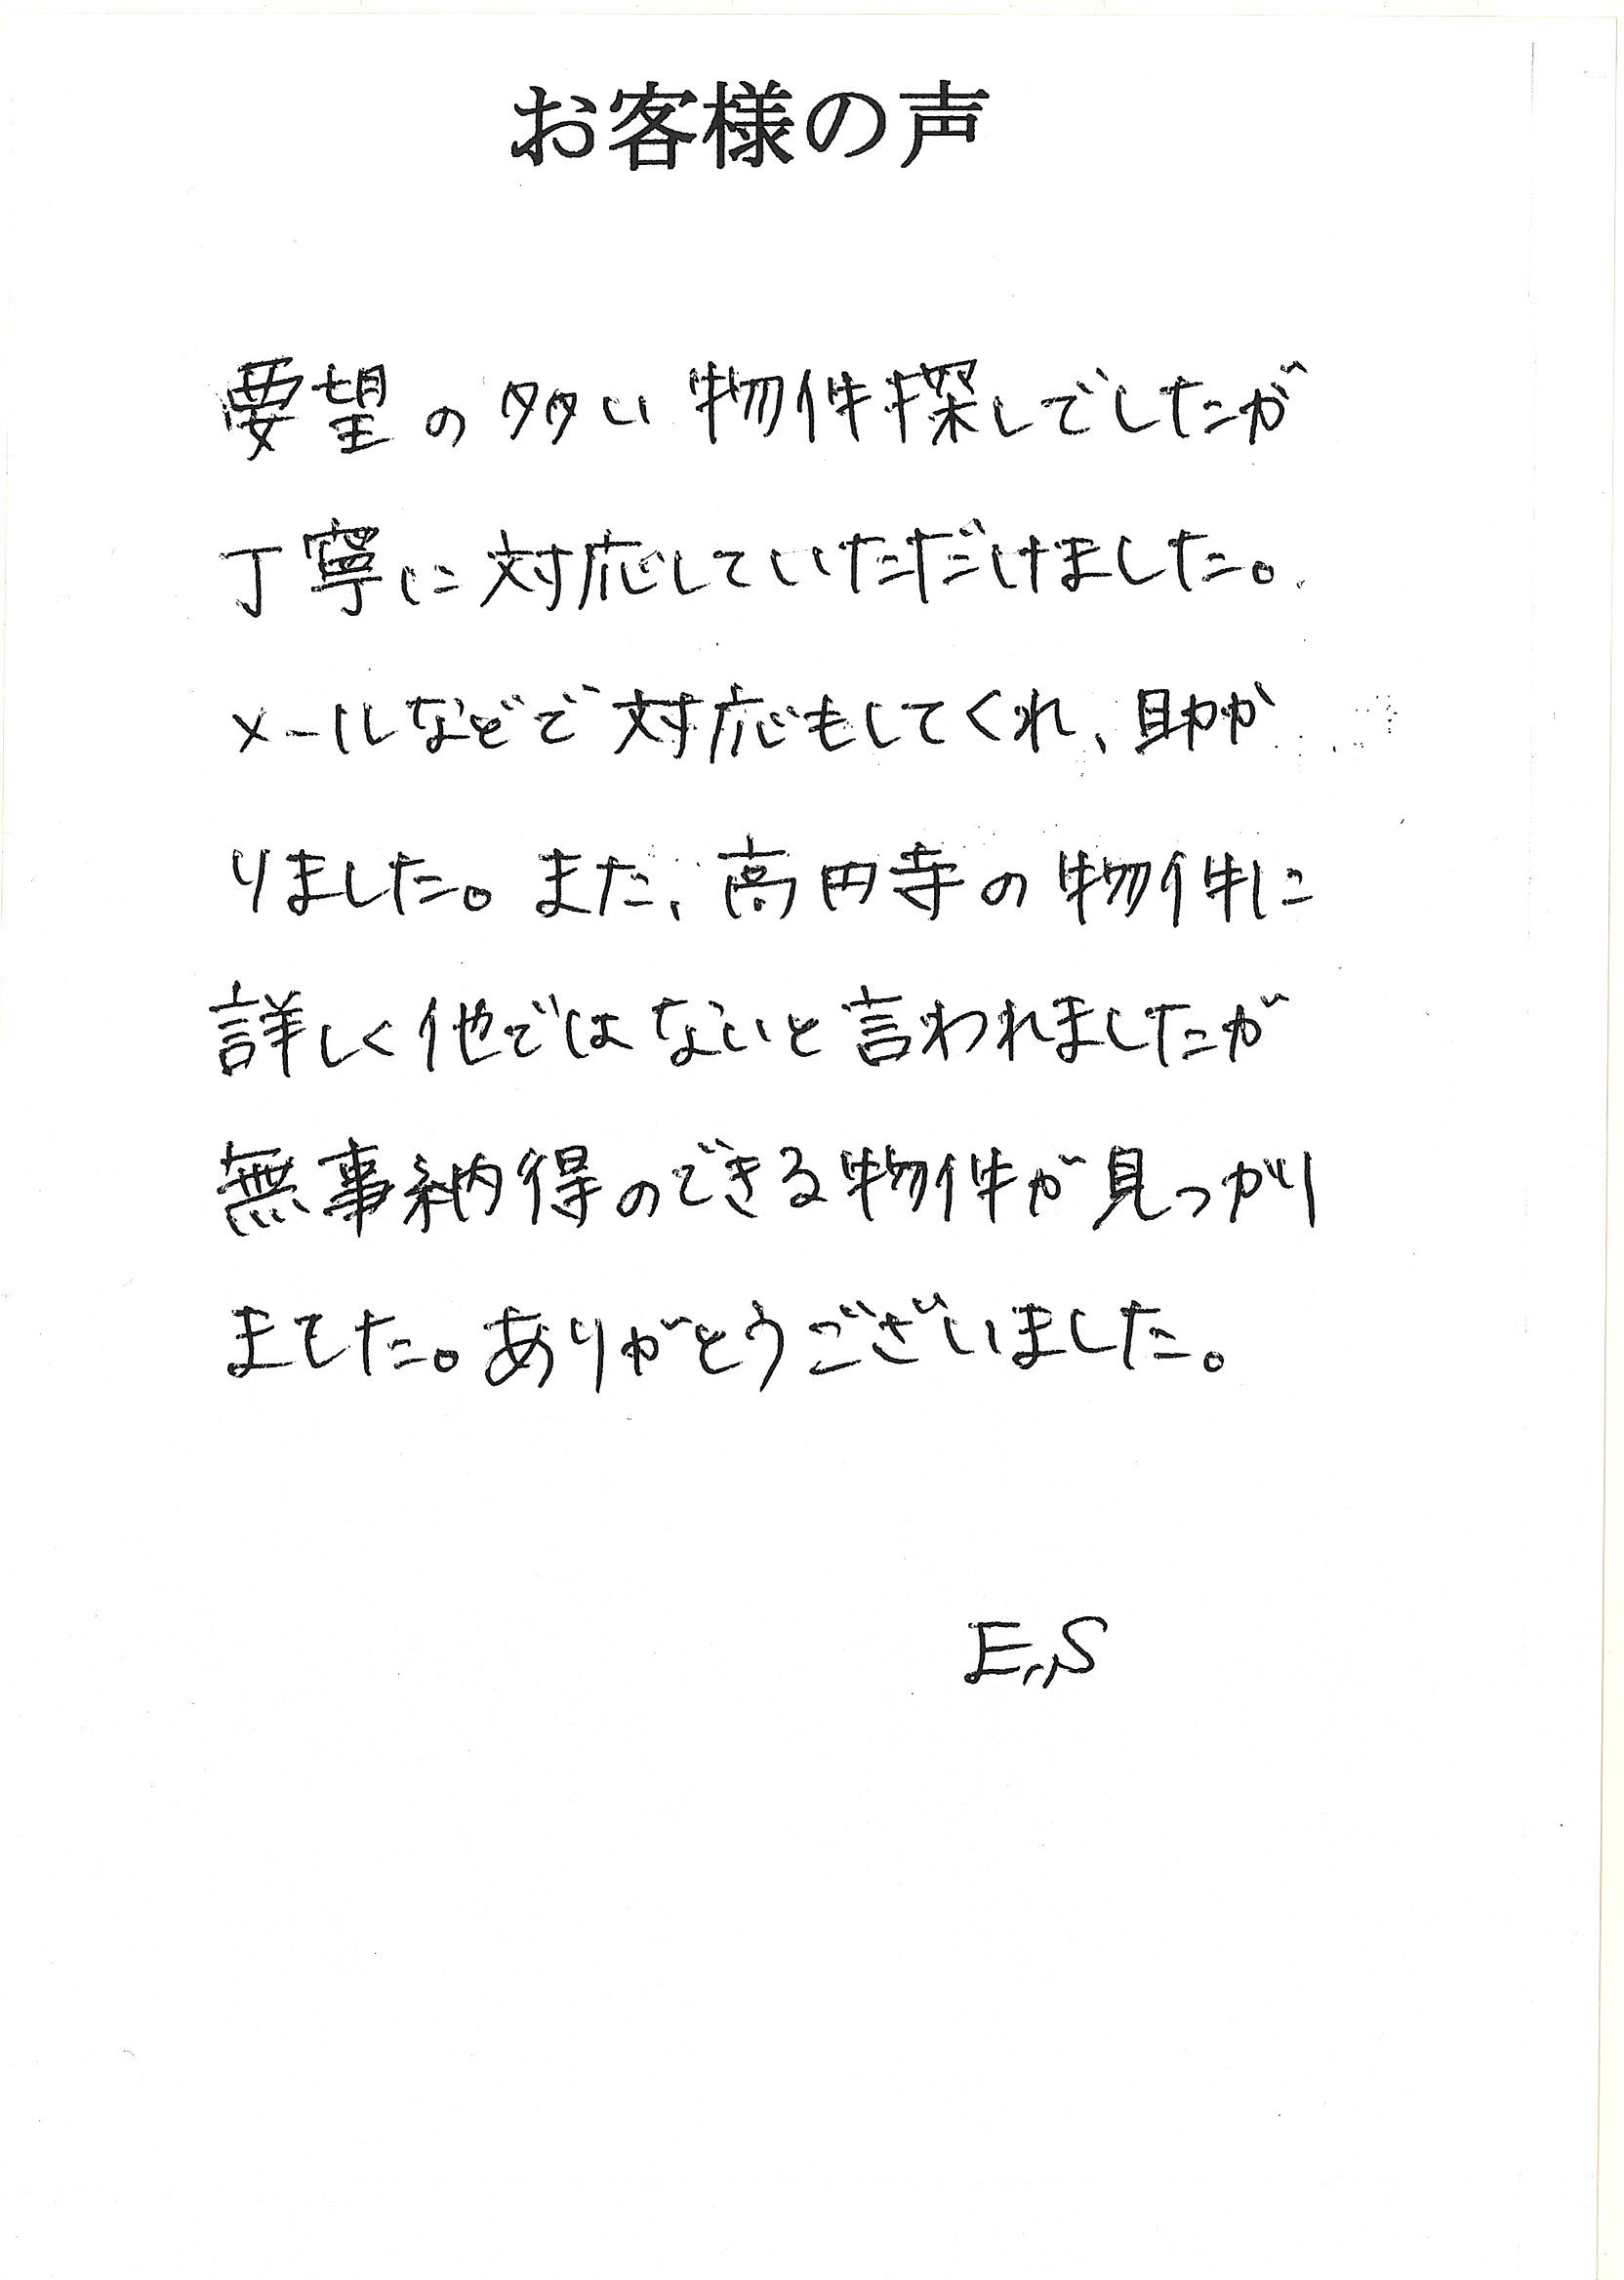 お客様の声
要望の多い物件探しでしたが
丁寧に対応していただけました。
メールなどで対応もしてくれ、助か
りました。また、高円寺の物件に
詳しく他ではないと言われましたが
無事納得のできる物件が見つかり
ました。ありがとうございました。
E.,S